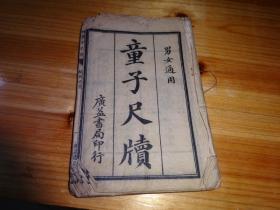 男女適用
童子尺牘
廣益書局印行